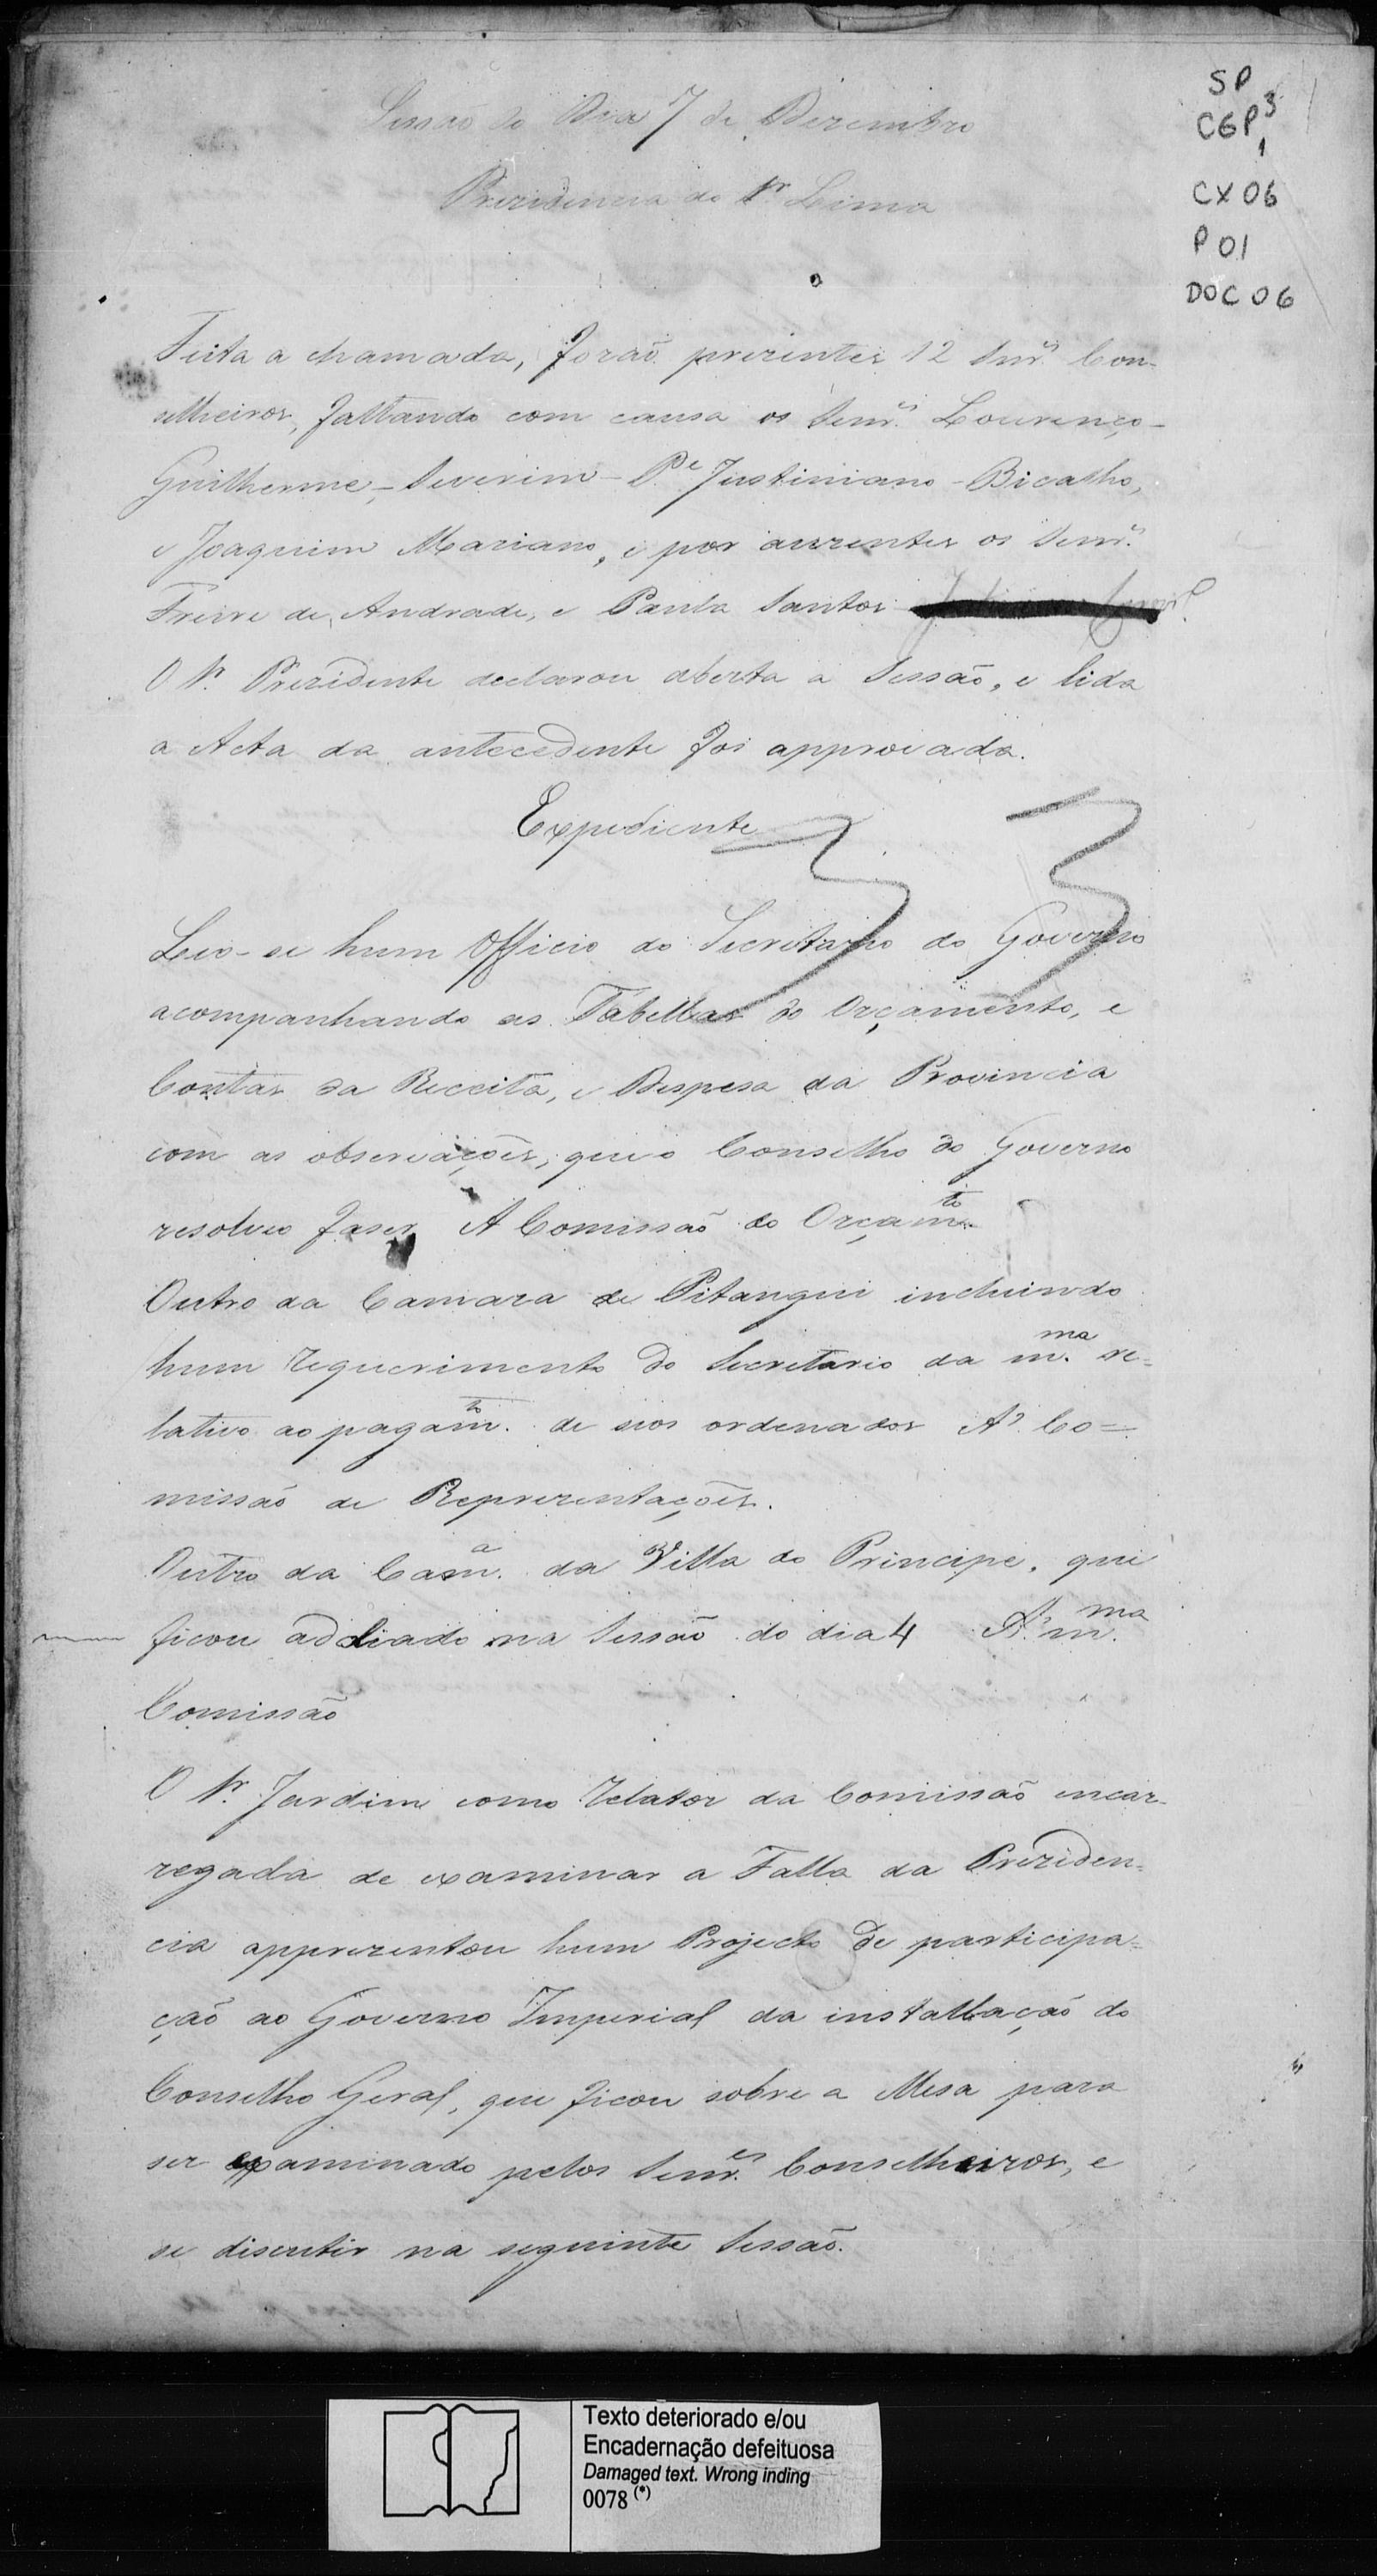 SP
CGP³
1
CX 06
P 01
DOC 06
Sessão do Dia 7 de Dezembro
Prezidencia do Sr Lima
Feita a chamada, forão prezentes 12 Snres. Con-
selheiros, faltando com causa os Senres. Lourenço-
Guilherme,- Severim- Pe. Justiniano - Bicalho,
e Joaquim Mariano, e por auzentes os Senres.
Freire de Andrade, e Paula Santos
O Sr. Prezidente declarou aberta a Sessão, e lida
a Acta da antecedente foi approvada.
Expediente
Leo-se hum Officio do Secretario do Governo
acompanhando as Tabellas do Orçamento, e
Contas da Receita, e Despesa da Provincia
com as observações, que o Conselho do Governo
resolveo faser A Comissão do Orçamto.
Outro da Camara de Pitangui incluindo
hum requerimento do Secretario da mma. re=
lativo ao pagamto. de seos ordenados A' Co=
missão de Reprezentações.
Outro da Cama. da Villa do Principe, que
ficou addiado na Sessão do dia 4 A' mma.
Comissão
O Sr. Jardim como Relator da Comissão encar-
regada de examinar a Falla da Preziden=
cia apprezentou hum Projecto de participa=
ção ao Governo Imperial da installação do
Conselho Geral, que ficou sobre a Mesa para
ser examinado pelos Senres. Conselheiros, e
se discutir na seguinte Sessão.
Texto deteriorado e/ou
Encadernação defeituosa
Damaged text. Wrong inding
0078 (*)